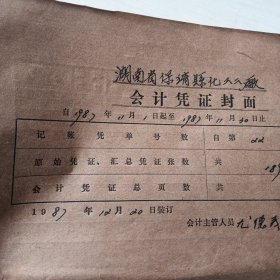 湖南省保靖县化工厂
会计凭证封面
自1987年11月1日起至1987年11月30日止
记账凭单号数 自第22
原始凭证、汇总凭证张数 共189
会计凭证总页数 共
1987年12月20日装订
会计主管人员